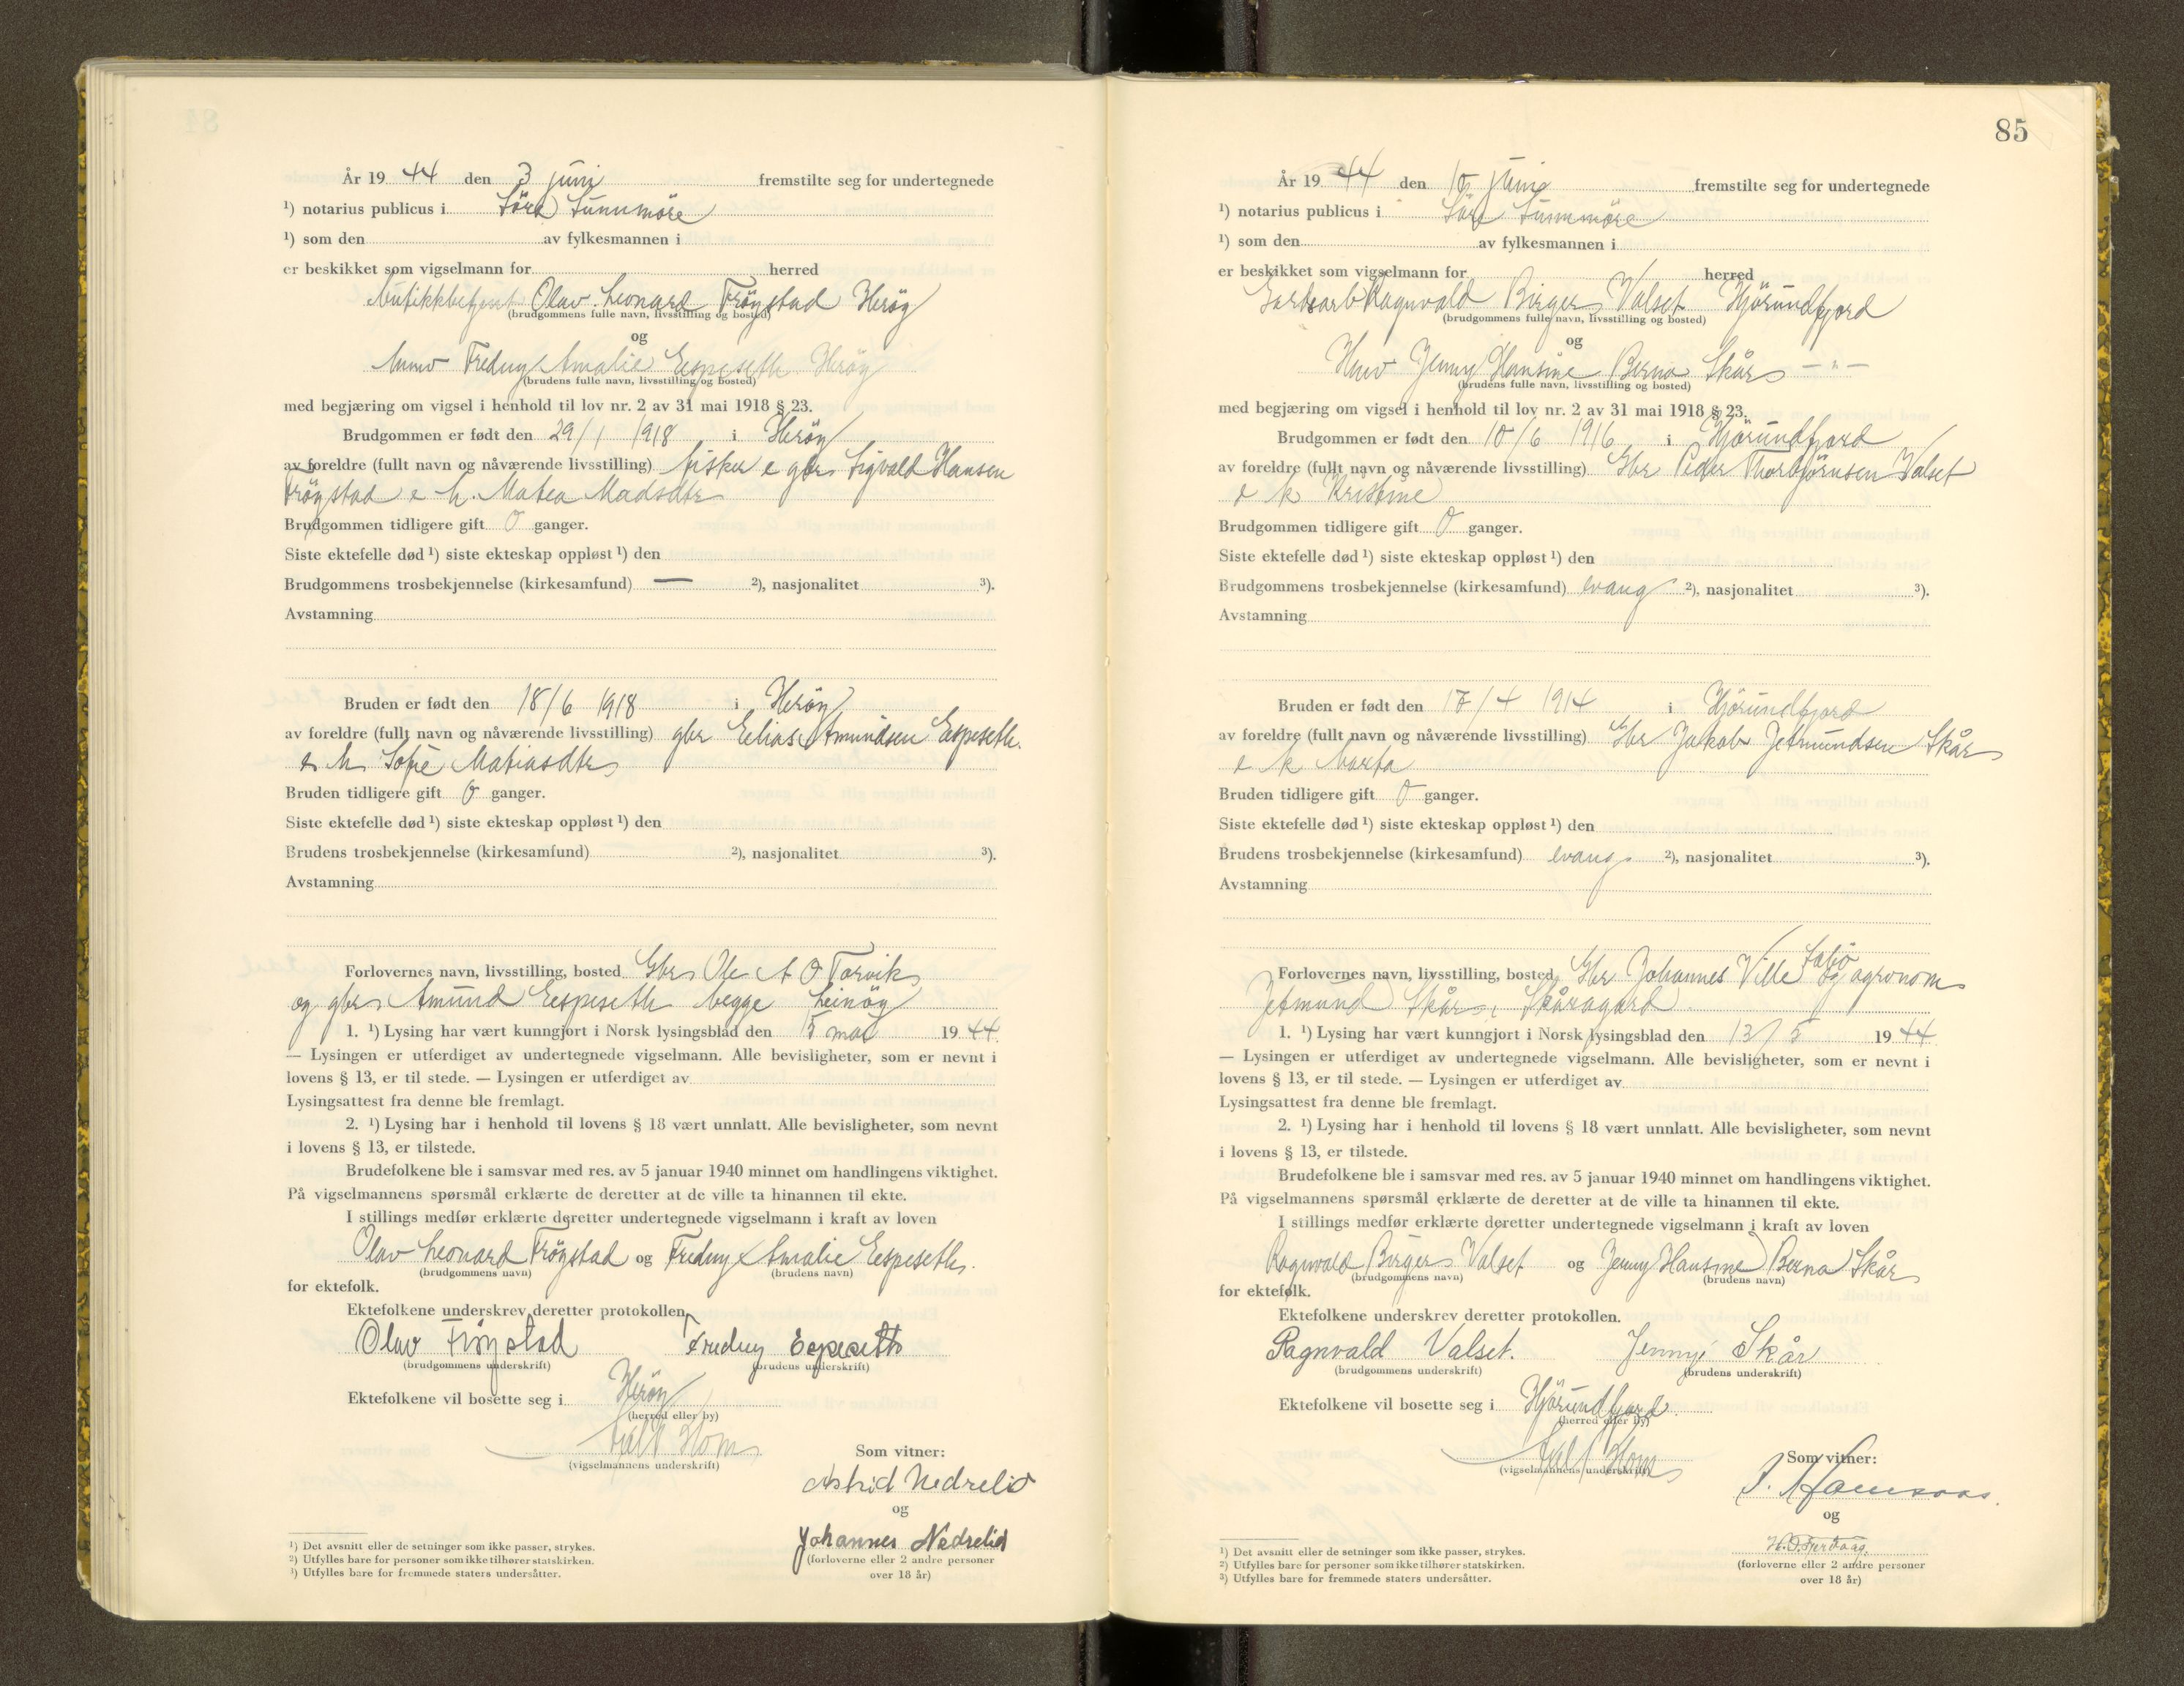 År 19 44 den 3 juni fremstilte seg for undertegnede
¹) notarius publicus i Söre Sunnmöre
¹) som den av fylkesmannen i
er beskikket som vigselmann for herred
butikkbetjent Olav Leonard Fröystad Heröy
(brudgommens fulle navn, livsstilling og bosted)
og
Fredny Amalie Espeseth Heröy
(brudens fulle navn, livsstilling og bosted)
med begjæring om vigsel i henhold til lov nr. 2 av 31 mai 1918 § 23.
Brudgommen er født den 29/1 1918 i Heröy
av foreldre (fullt navn og nåværende livsstilling) fisker e gbr Sigvald Hansen
Fröystad e h. Matea Madsdtr
Brudgommen tidligere gift 0 ganger.
Siste ektefelle død ¹) siste ekteskap oppløst ¹) den
Brudgommens trosbekjennelse (kirkesamfund) — ²), nasjonalitet ³).
Avstamning
Bruden er født den 18/6 1918 i Heröy
av foreldre (fullt navn og nåværende livsstilling) gbr Elias Amundsen Espeseth
e h Sofie Matiasdtr
Bruden tidligere gift 0 ganger.
Siste ektefelle død ¹) siste ekteskap oppløst ¹) den
Brudens trosbekjennelse (kirkesamfund) ²), nasjonalitet ³).
Avstamning
Forlovernes navn, livsstilling, bosted Gbr Ole A O Torvik
og gbr Amund Espeseth begge Leinöy
1. ¹) Lysing har vært kunngjort i Norsk lysingsblad den 15 mai 19 44
— Lysingen er utferdiget av undertegnede vigselmann. Alle bevisligheter, som er nevnt i
lovens § 13, er til stede. — Lysingen er utferdiget av
Lysingsattest fra denne ble fremlagt.
2. ¹) Lysing har i henhold til lovens § 18 vært unnlatt. Alle bevisligheter, som nevnt
i lovens § 13, er tilstede.
Brudefolkene ble i samsvar med res. av 5 januar 1940 minnet om handlingens viktighet.
På vigselmannens spørsmål erklærte de deretter at de ville ta hinannen til ekte.
I stillings medfør erklærte deretter undertegnede vigselmann i kraft av loven
Olav Leonard Fröystad og Fredny Amalie Espeseth
(brudgommens navn) (brudens navn)
for ektefolk.
Ektefolkene underskrev deretter protokollen
Olav Fröystad Fredny Espeseth
(brudgommens underskrift) (brudens underskrift)
Ektefolkene vil bosette seg i Heröy
(herred eller by)
(vigselmannens underskrift)
Som vitner:
Astrid Nedrelid
og
Johannes Nedrelid
(forloverne eller 2 andre personer
over 18 år)
¹) Det avsnitt eller de setninger som ikke passer, strykes.
²) Utfylles bare for personer som ikke tilhører statskirken.
³) Utfylles bare for fremmede staters undersåtter.
85
År 19 44 den 10 juni fremstilte seg for undertegnede
¹) notarius publicus i Söre Sunnmöre
¹) som den av fylkesmannen i
er beskikket som vigselmann for herred
Ragnvald Birger Valset Hjörundfjord
(brudgommens fulle navn, livsstilling og bosted)
og
Jenny Hansine Berna Skår — " —
(brudens fulle navn, livsstilling og bosted)
med begjæring om vigsel i henhold til lov nr. 2 av 31 mai 1918 § 23.
Brudgommen er født den 10/6 1916 i Hjörundfjord
av foreldre (fullt navn og nåværende livsstilling) Gbr Peder Thorbjörnsen Valset
e k Kristine
Brudgommen tidligere gift 0 ganger.
Siste ektefelle død ¹) siste ekteskap oppløst ¹) den
Brudgommens trosbekjennelse (kirkesamfund) evang ²), nasjonalitet ³).
Avstamning
Bruden er født den 17/4 1914 i Hjörundfjord
av foreldre (fullt navn og nåværende livsstilling) Gbr Jakob Jetmundsen Skår
e k Marta
Bruden tidligere gift 0 ganger.
Siste ektefelle død ¹) siste ekteskap oppløst ¹) den
Brudens trosbekjennelse (kirkesamfund) evang ²), nasjonalitet ³).
Avstamning
Sæbö
Forlovernes navn, livsstilling, bosted Gbr Johannes Ville og agronom
Jetmund Skår, Skåragard
1. ¹) Lysing har vært kunngjort i Norsk lysingsblad den 13/5 19 44
— Lysingen er utferdiget av undertegnede vigselmann. Alle bevisligheter, som er nevnt i
lovens § 13, er til stede. — Lysingen er utferdiget av
Lysingsattest fra denne ble fremlagt.
2. ¹) Lysing har i henhold til lovens § 18 vært unnlatt. Alle bevisligheter, som nevnt
i lovens § 13, er tilstede.
Brudefolkene ble i samsvar med res. av 5 januar 1940 minnet om handlingens viktighet.
På vigselmannens spørsmål erklærte de deretter at de ville ta hinannen til ekte.
I stillings medfør erklærte deretter undertegnede vigselmann i kraft av loven
Ragnvald Birger Valset og Jenny Hansine Berna Skår
(brudgommens navn) (brudens navn)
for ektefolk.
Ektefolkene underskrev deretter protokollen.
Ragnvald Valset. Jenny Skår
(brudgommens underskrift) (brudens underskrift)
Ektefolkene vil bosette seg i Hjörundfjord
(herred eller by)
(vigselmannens underskrift)
Som vitner:
og
(forloverne eller 2 andre personer
over 18 år)
¹) Det avsnitt eller de setninger som ikke passer, strykes.
²) Utfylles bare for personer som ikke tilhører statskirken.
³) Utfylles bare for fremmede staters undersåtter.